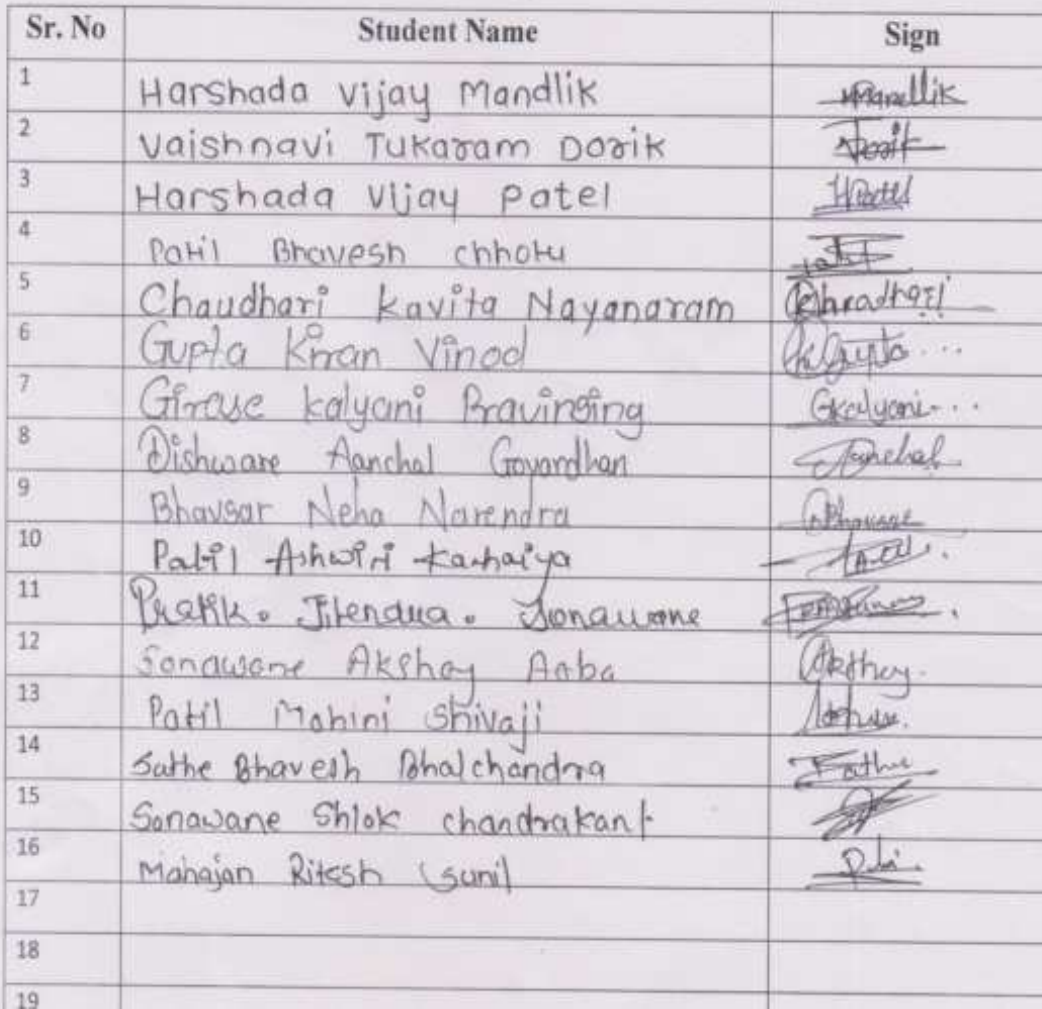 Sr. No Student Name Sign
1 Harshada Vijay Mandlik Mandlik
2 Vaishnavi Tukaram Dorik Dorik
3 Harshada Vijay Patel HPatel
4 Patil Bhavesh chhotu
5 Chaudhari Kavita Nayanaram
6 Gupta Kiran Vinod Gupta...
7 Girase Kalyani Pravinsing Gkalyani...
8 Dishware Aanchal Govardhan Aanchal
9 Bhavsar Neha Narendra Bhavsar
10 Patil Ashwini Kanhaiya
11 Pratik. Jitendra. Sonawane
12 Sonawane Akshay Aaba Akshay.
13 Patil Mohini Shivaji
14 Sathe Bhavesh Bhalchandra Sathe
15 Sonawane Shlok chandrakant
16 Mahajan Ritesh sunil
17
18
19